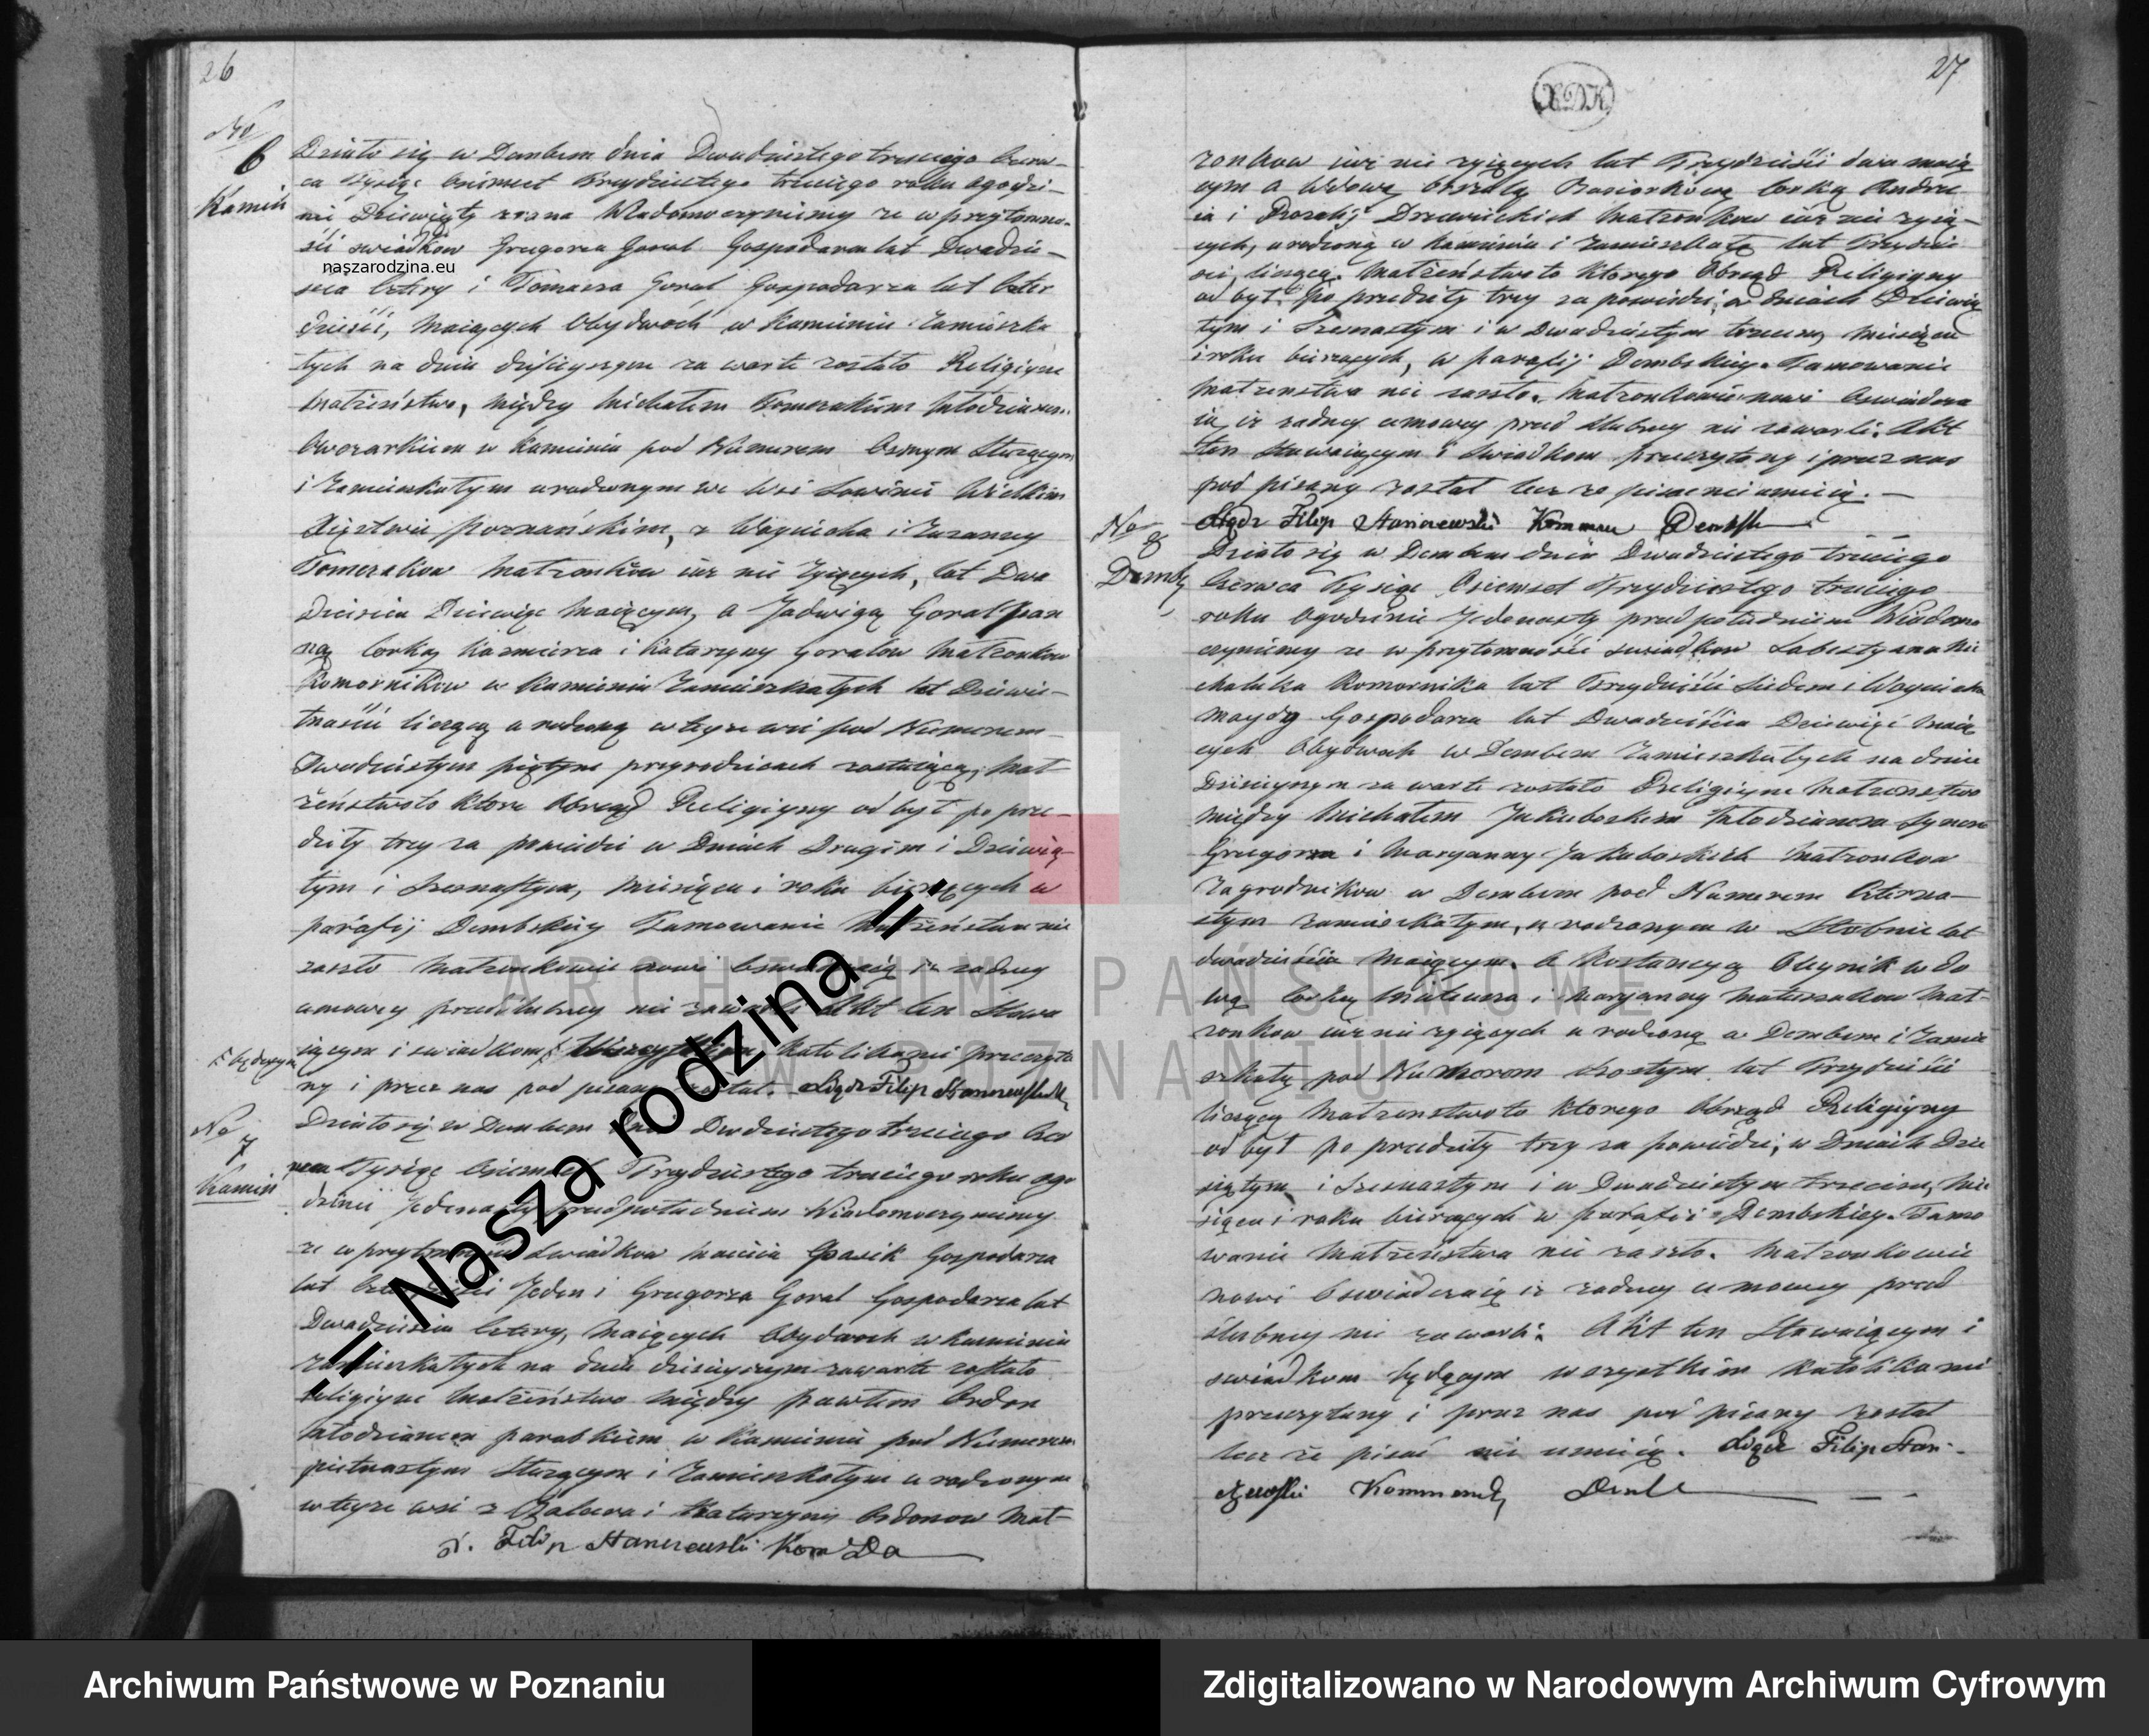 26
No
6
Kamiń
Działo się w Dembem dnia Dwudziestego trzeciego Czerw-
ca Tysiąc Ośmset Trzydziestego trzeciego roku ogodzi-
nie Dziewiąty zrana Wiadomo czyniemy ze w przytomno-
ści swiadków Grzegorza Goral Gospodarza lat Dwadzie-
naszarodzina.eu
scia Cztery i Tomasza Goral Gospodarza lat Czter
dzieści, maiących Obydwoch w Kamieniu Zamieszka
łych na dniu dzisieyszym za warte zostało Religiyne
małżeństwo, między Michałem Młodzianem
Owczarkiem w Kamieniu pod Numerem Osmym Służącym
i Zamieszkałym urodzonym we Wsi Wielkim
Xięztwie poznańskim, z Woyciecha i Zuzanny
Małzonków iuz nie zyiących, lat Dwa
dzieścia Dziewięc maiącym, a Jadwigą Goral pan
ną Corką Kazmierza i Kataryny Goralow Małzonkow
Komorników w Kamieniu Zamieszkałych lat Dziewie-
tnaście liczącą urodzoną w teyze wsi pod Numerem
Dwudziestym piątym przyrodzicach zostaiącą, Mał
żeństwo to ktore Obrząd Religiyny od był po prze-
dziły trzy za powiedzi w Dniach Drugim i Dziewią-
tym i Szesnastym, miesiąca i roku bieżących w
parafij Dembskiey Tamowanie Małżeństwa nie
zaszło Małzonkowie nowi iz zadney
umowy przedślubney nie zawarli Akt ten Stawa
iącym i swiadkom Katolikami przeczyta
będącym
ny i przez nas pod pisany został. Xiądz Filip Staniszewski
No
7
Kamień
Działo się w Dembem Dnia Dwudziestego trzeciego Czer
wca Tysiąc Ośmset Trzydziestego trzeciego roku ogo
dzinie Jedenasty przed południem Wiadomo czyniemy
ze w przytomności Swiadkow Macieia Gospodarza
lat Jeden i Grzegorza Goral Gospodarza lat
Dwadzieścia Cztery, maiących Obydwoch w Kamieniu
zamieszkałych na dniu dzisieyszym zawarte zostało
religiyne Małżeństwo między pawłem
Młodzianem parobkiem w Kamieniu pod Numerem
pietnastym Służącym i Zamieszkałym urodzonym
w teyze wsi z i Kataryny Mał-
X. Filip Staniszewski Kom Do
27
zonkow iuz nie zyiących lat Trzydzieści dwa maią
cym a Wdową Corką Andrze
ia i Rozalij Małzonkow iuz nie zyią-
cych, urodzoną w Kamieniu i Zamieszkałą lat Trzydzie
sci, liczącą. Małżeństwo to ktorego Obrząd Religiyny
od był po przedziły trzy za powiedzi, w dniach Dziewią
tym i Szesnastym i w Dwudziestym trzecim, miesiąca
i roku bieżących, w parafij Dembskiey. Tamowanie
Małzenstwa nie zaszło. Małzonkowie nowi Oswiadcza
ią iz zadney umowy przed slubney nie zawarli. Akt
ten Stawaiącym i Swiadkom przeczytany i przez nas
pod pisany został lecz ze pisac nie umieią.
Xiądz Filip Staniszewski
No
8
Dembe
Działo się w Dembem dnia Dwudziestego trzeciego
Czerwca Tysiąc Ośiemset Trzydziestego trzeciego
roku Ogodzinie Jedenasty przed południem Wiadomo
czyniemy ze w przytomności swiadkow
Komornika lat Trzydzieści Siedem i Woyciecha
Gospodarza lat Dwadzieścia Dziewięć maią
cych Obydwoch w Dembem Zamieszkałych na dniu
Dzisieyszym za warte zostało Religiyne Małzenstwo
między Michałem Jakuboskim Młodzianem Synem
Grzegorza i Maryanny Jakuboskich Małzonkow
Zagrodnikow w Dembem pod Numerem Czterna-
stym zamieszkałym, urodzonym w lat
dwadzieścia maiącym. a Kostancyą Wdo
wą Corką i Maryanny Mał-
zonkow iuz nie zyiących urodzoną w Dembem i Zamie
szkałą pod Numerem szostym lat Trzydzieści
liczącą Małzenstwo to ktorego Obrząd Religiyny
od był po przedziły trzy za powiedzi, w Dniach Dzie
wiątym i Szesnastym i w Dwudziestym trzecim, mie
siąca i roku bieżących w parafii Dembskiey. Tamo
wanie Małżeństwa nie zaszło. Małzonkowie
nowi Oswiadczaią iz zadney umowy przed
slubney nie zawarli. Akt ten Stawaiącym i
swiadkom będącym wszystkim Katolikami
przeczytany i przez nas pod pisany został
lecz ze pisać nie umieią. Xiądz Filip Stani-
szewski
ARCHIWUM PAŃSTWOWE
W POZNANIU
.:: Nasza rodzina ::.
Archiwum Państwowe w Poznaniu
Zdigitalizowano w Narodowym Archiwum Cyfrowym